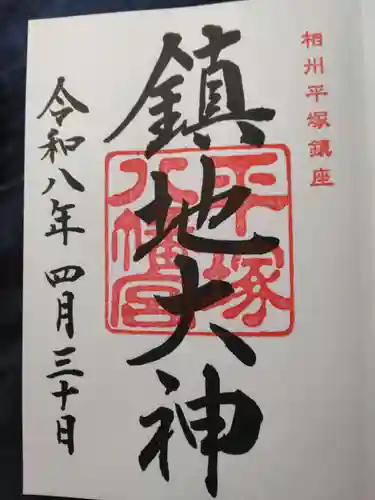 相州平塚鎮座
鎮地大神
平塚
八幡宮
令和八年 四月三十日